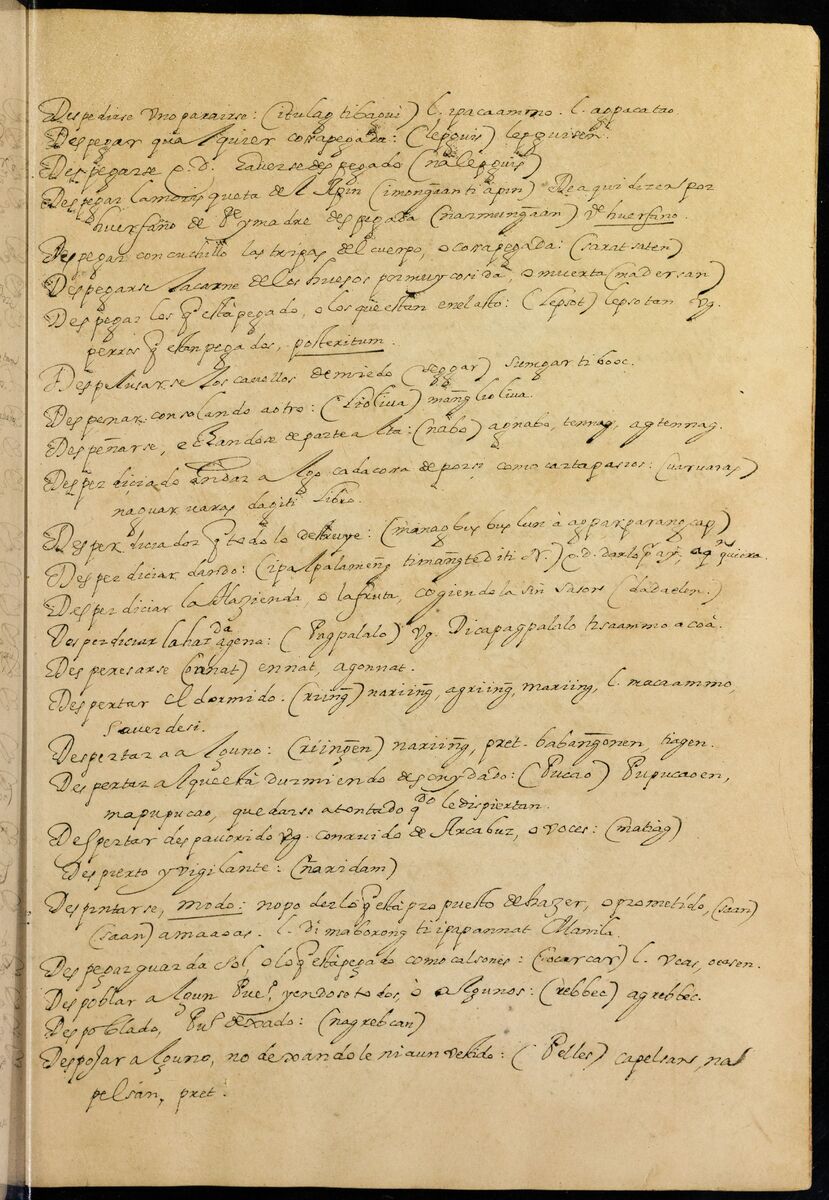 Despedirse uno para irse: (itulag ti bagui) l. ipacaammo. l. agpacatao.
Despegar qualquier cosa pegada: (lepguis) lepguisen.
Despegarse q.D. haverse despegado (nalepguis)
Despegar la morisqueta del Apin (imongñan ti apin) De aqui dizen por
huerfano de Pe y madre despegada (naimungñaan) Ve huerfano.
Despegar con cuchillo las tripas del cuerpo, o cosa pegada: (sarat saten)
Despegarse la carne de los huesos por muy cosida, o muerta (madersan)
Despegar los q está pegado, o los que estan en el asto: (lepsot) lepsotan vg.
perros q estan pegados, posteritum.
Despelusarse los cavellos de miedo (seggar) sumgar ti booc.
Despenar consolando a otro: (Lioliua) mang̃lioliua.
Despeñarse, echandose de parte alta: (nabo) agnabo, tennag, agtennag.
Desperdiciado andar algo cada cosa de por si, como cartapasios: (uaruaras)
naguar uaras dagiti libro.
Desperdiciador q todo lo destruye: (managbusbus lun à agparparang̃cap)
Desperdiciar dando: (ipalpalameng̃ ti mang̃ted iti N.) q.D. darlo pr ay, a qn quiera.
Desperdiciar la Hazienda o la fruta, cogiendola sin sason: (dadaelen.)
Desperdiciar la hazda agena: (Pagpalalo) vg. Dica pagpalalo ti saammo a coà.
Desperesarse (ennat) ennat, agonnat.
Despertar el dormido. (riing̃) nariing̃, agriing̃, mariing, l. macaammo,
saver desi.
Despertar a alguno: (riing̃en) nariing̃, pret. babang̃onen, tiagen.
Despertar al que está durmiendo descuydado: (Pucao) Pupucaoen,
mapupucao, quedarse atontado qdo le dispiertan.
Despertar despavorido vg. con ruido de Arcabuz, o voces: (matiag)
Despierto y vigilante: (naridam)
Despintarse, modo: no poder lo q está propuesto de hazer, o prometido, (saan)
(saan) amaaoas. l. Di maborong ti ipapannat Manila.
Despegar guarda sol, o lo q está pegado como calsones: (Socarcar) l. ucas, ocasen.
Despoblar algun Puel, yendose todos, ò algunos: (rebbec) agrebbec.
Despoblado, Pul dexado: (nagrebcan)
Despojar alguno, no dexandole ni aun vestido: (Pelles) capelsans, na
pelsán, pret.